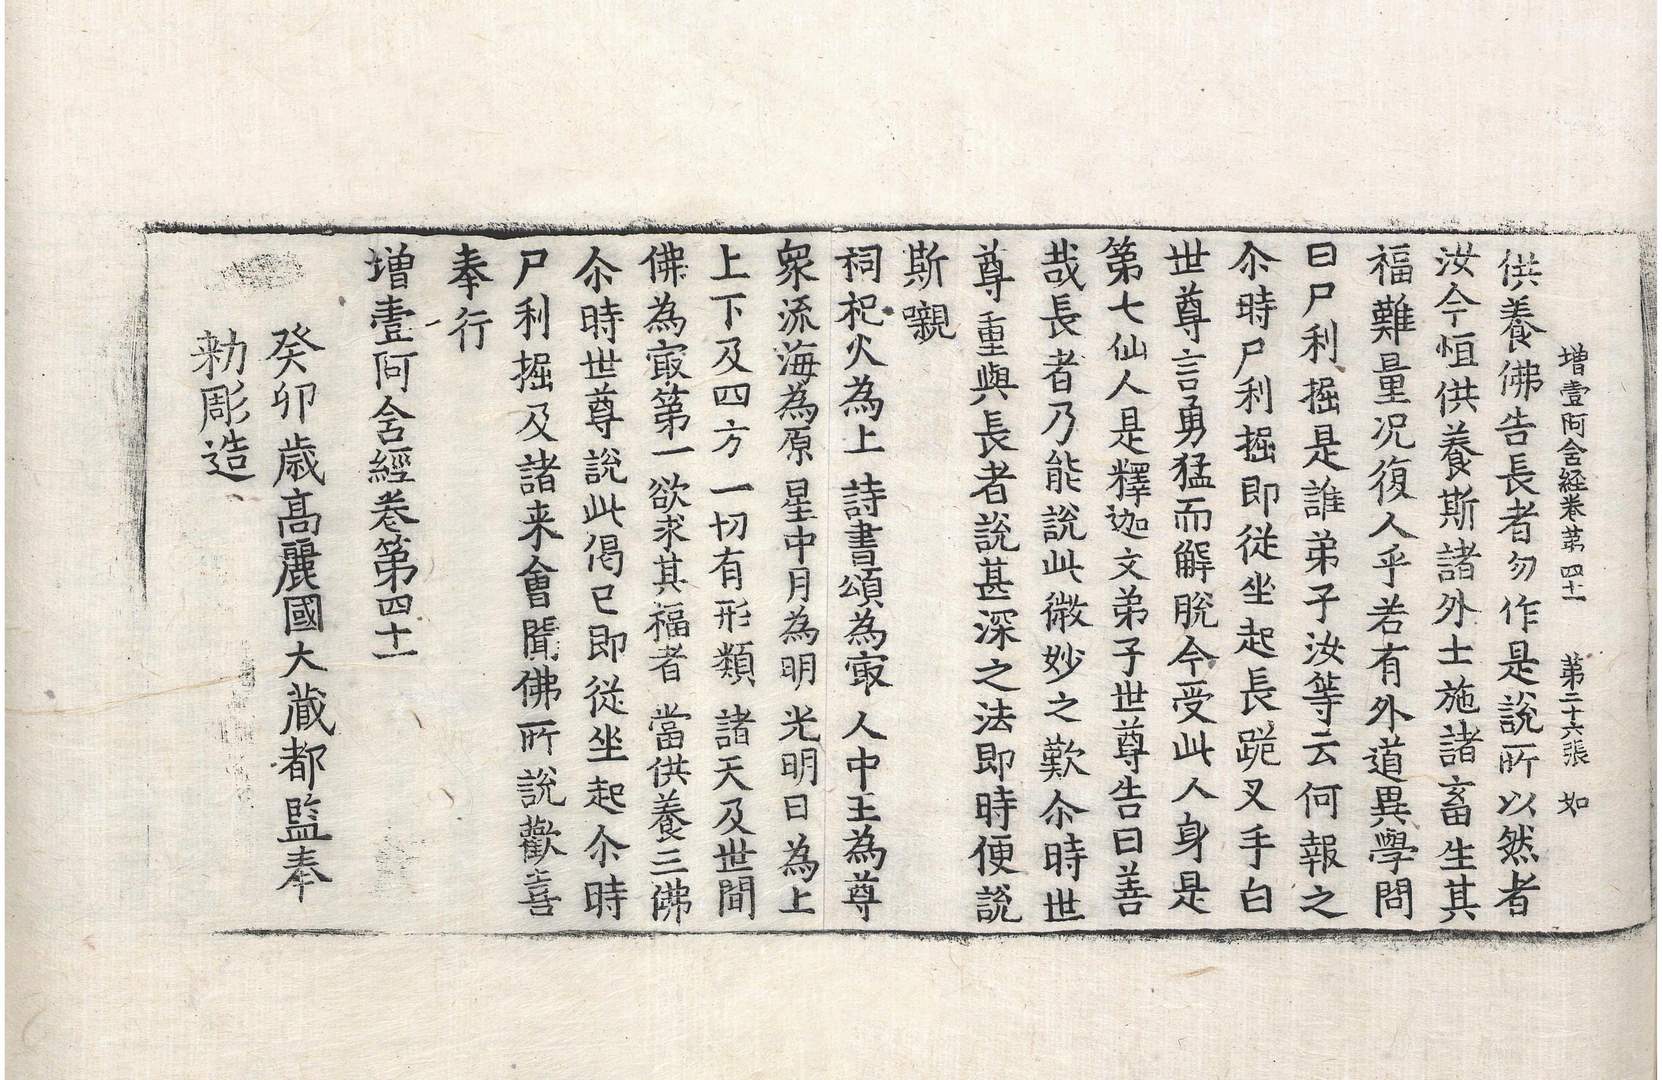 增壹阿含經卷第四十一 第二十六張 如
供養佛告長者勿作是說所以然者
汝今恒供養斯諸外士施諸畜生其
福難量况復人乎若有外道異學問
曰尸利掘是誰弟子汝等云何報之
尒時尸利掘即從坐起長跪叉手白
世尊言勇猛而解脫今受此人身是
第七仙人是釋迦文弟子世尊告曰善
哉長者乃能說此微妙之歎尒時世
尊重與長者說甚深之法即時便說
斯嚫
祠祀火為上 詩書頌為㝡 人中王為尊
衆流海為原 星中月為明 光明日為上
上下及四方 一切有形類 諸天及世間
佛為㝡第一 欲求其福者 當供養三佛
尒時世尊說此偈已即從坐起尒時
尸利掘及諸来會聞佛所說歡喜
奉行
增壹阿含經卷第四十一
癸卯歳高麗國大藏都監奉
勅彫造